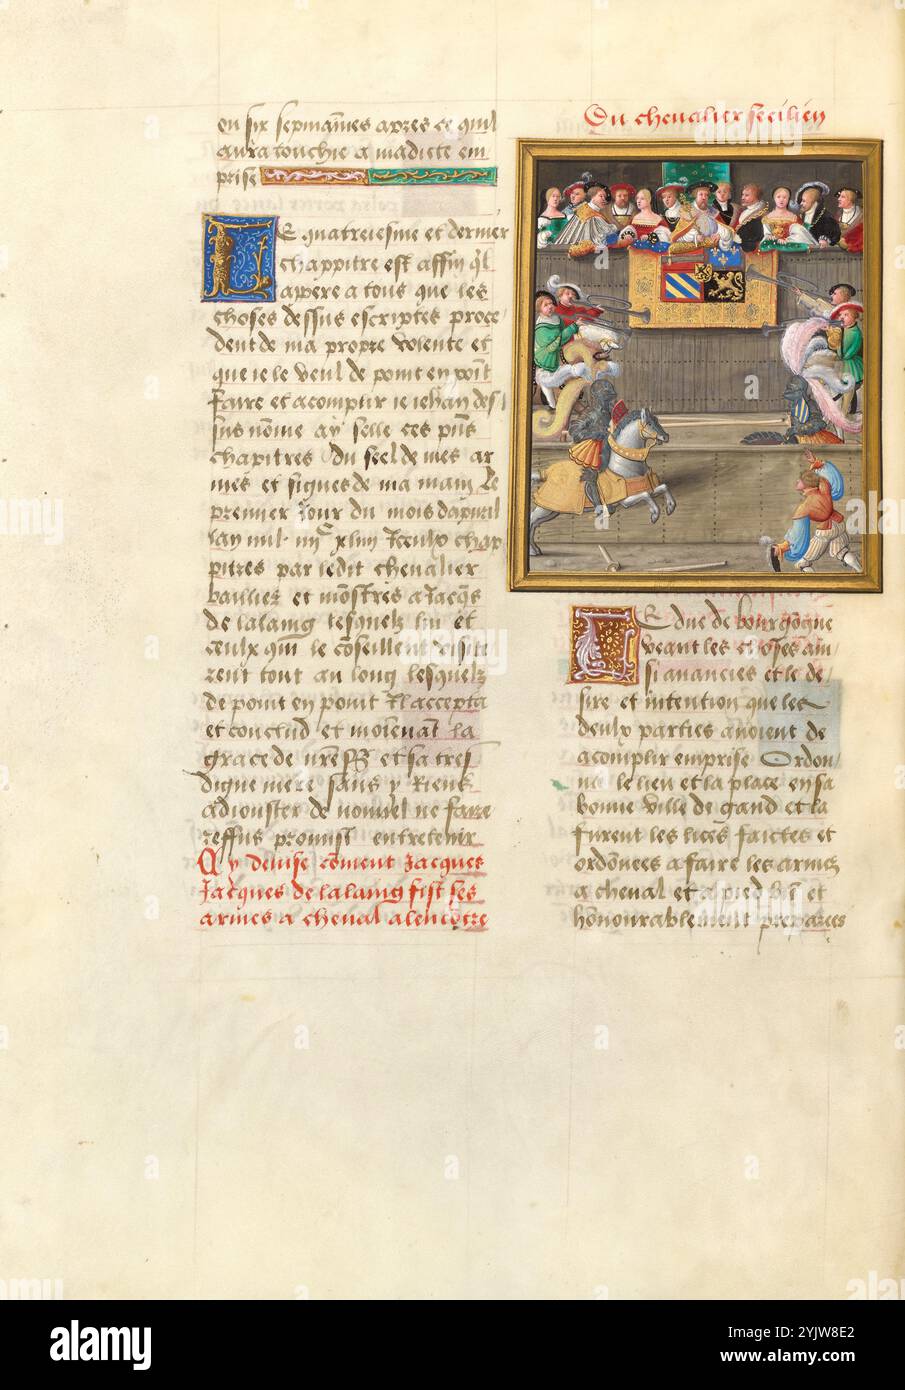 ou six sepmaines apres ce quil
aura touchie a madicte em
prise
Le quatreiesme et dernier
chappitre est affin ql
appere a tous que les
choses dessus escriptes proce
dent de ma propre volente et
que ie le veul de point en point
faire et acomplir ie iehan des
sus nome ay selle ces pns
chapitres Du seel de mes ar
mes et signes de ma main Le
premier Jour du mois dapuril
lan mil
pitres par ledit chevalier
bailliez et monstres a Jacqs
de lalaing lesquelz lui et
ceulx qui le coseillent visite
rent tout au long lesquelz
de point en point Il accepta
et conclud et moienant la
grace de nreSr et sa tres
digne mere sans y Riens
adiouster de nouuel ne faire
reffus promist entretenir
Cy devise coment Jacques
Jacques de lalaing fist ses
armes a cheval a lencotre
Du chevalier secilien
Le duc de bourgogne
veant les choses ain
si anancies et le de
sire et intention que les
deulx parties avoient de
acomplir emprise Ordon
na le lieu et la place en sa
bonne ville de gand et la
furent les lices faictes et
ordonees a faire les armes
a cheval et a pied bn et
honnourablement preparees
alamy
Image ID: 2YJW8E2
www.alamy.com